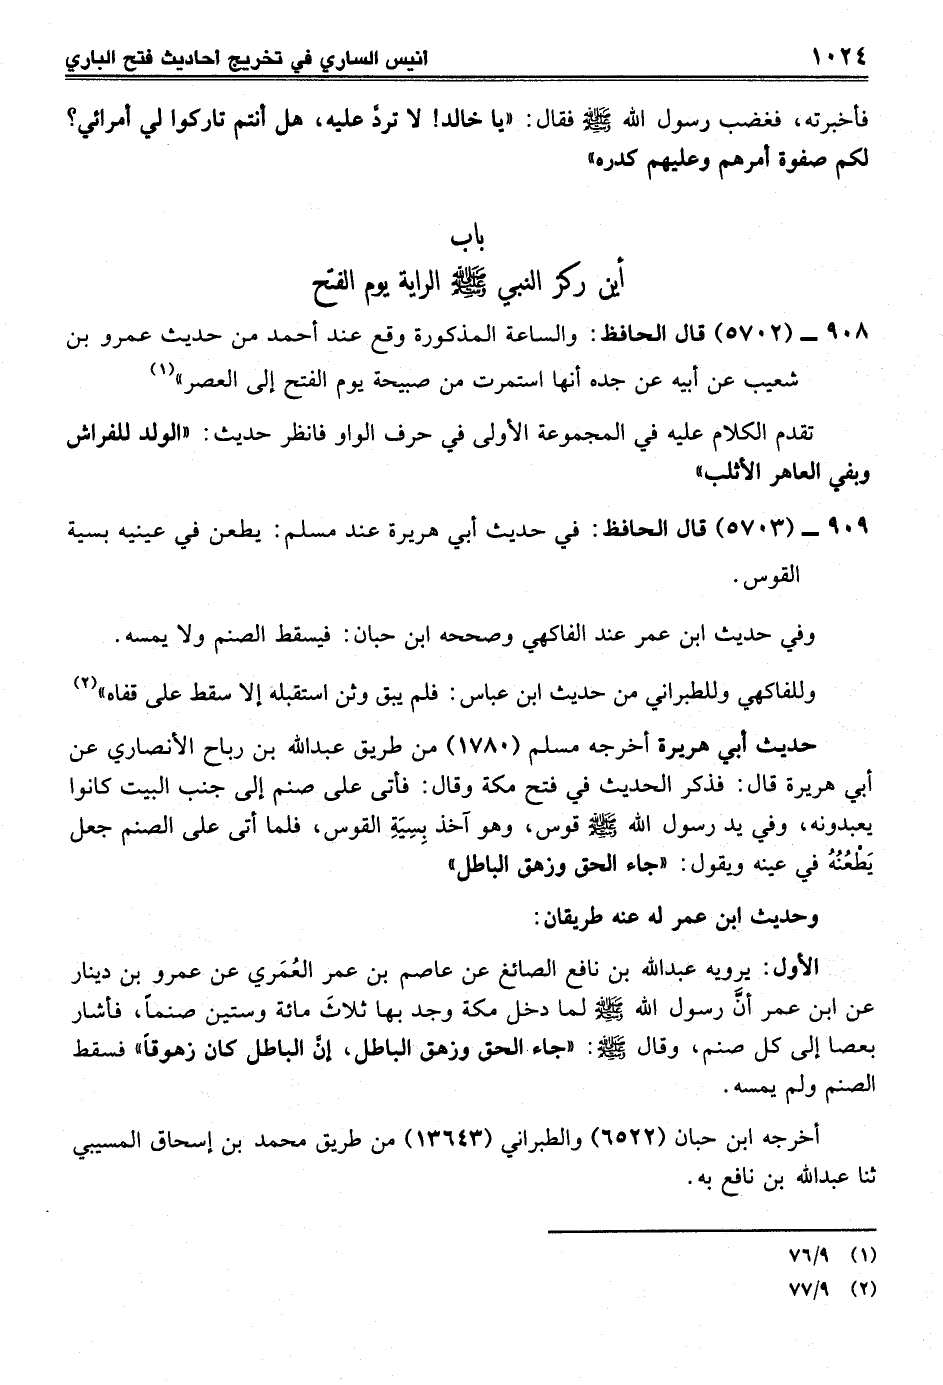 ١٠٢٤
أنيس الساري في تخريج أحاديث فتح الباري
فأخبرته، فغضب رسول الله ﷺ فقال: «يا خالد! لا تردَّ عليه، هل أنتم تاركوا لي أمرائي؟
لكم صفوة أمرهم وعليهم كدره»
باب
أين ركز النبي ﷺ الراية يوم الفتح
٩٠٨ ــ (٥٧٠٢) قال الحافظ: والساعة المذكورة وقع عند أحمد من حديث عمرو بن
شعيب عن أبيه عن جده أنها استمرت من صبيحة يوم الفتح إلى العصر»(١)
تقدم الكلام عليه في المجموعة الأولى في حرف الواو فانظر حديث: «الولد للفراش
وبفي العاهر الأثلب»
٩٠٩ ــ (٥٧٠٣) قال الحافظ: في حديث أبي هريرة عند مسلم: يطعن في عينيه بسية
القوس.
وفي حديث ابن عمر عند الفاكهي وصححه ابن حبان: فيسقط الصنم ولا يمسه.
وللفاكهي وللطبراني من حديث ابن عباس: فلم يبق وثن استقبله إلا سقط على قفاه»(٢)
حديث أبي هريرة أخرجه مسلم (١٧٨٠) من طريق عبدالله بن رباح الأنصاري عن
أبي هريرة قال: فذكر الحديث في فتح مكة وقال: فأتى على صنم إلى جنب البيت كانوا
يعبدونه، وفي يد رسول الله ﷺ قوس، وهو آخذ بِسِيَةِ القوس، فلما أتى على الصنم جعل
يَطْعُنُهُ في عينه ويقول: «جاء الحق وزهق الباطل»
وحديث ابن عمر له عنه طريقان:
الأول: يرويه عبدالله بن نافع الصائغ عن عاصم بن عمر العُمَري عن عمرو بن دينار
عن ابن عمر أنَّ رسول الله ﷺ لما دخل مكة وجد بها ثلاثَ مائة وستين صنماً، فأشار
بعصا إلى كل صنم، وقال ﷺ: «جاء الحق وزهق الباطل، إنَّ الباطل كان زهوقاً» فسقط
الصنم ولم يمسه.
أخرجه ابن حبان (٦٥٢٢) والطبراني (١٣٦٤٣) من طريق محمد بن إسحاق المسيبي
ثنا عبدالله بن نافع به.
(١) ٧٦/٩
(٢) ٧٧/٩